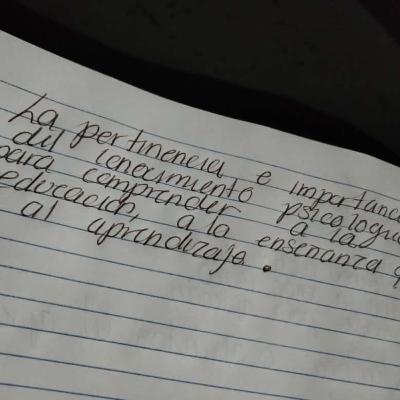 La pertinencia e importanc
del conocimiento psicologic
para comprender a la
educación, a la enseñanza
al aprendizaje.